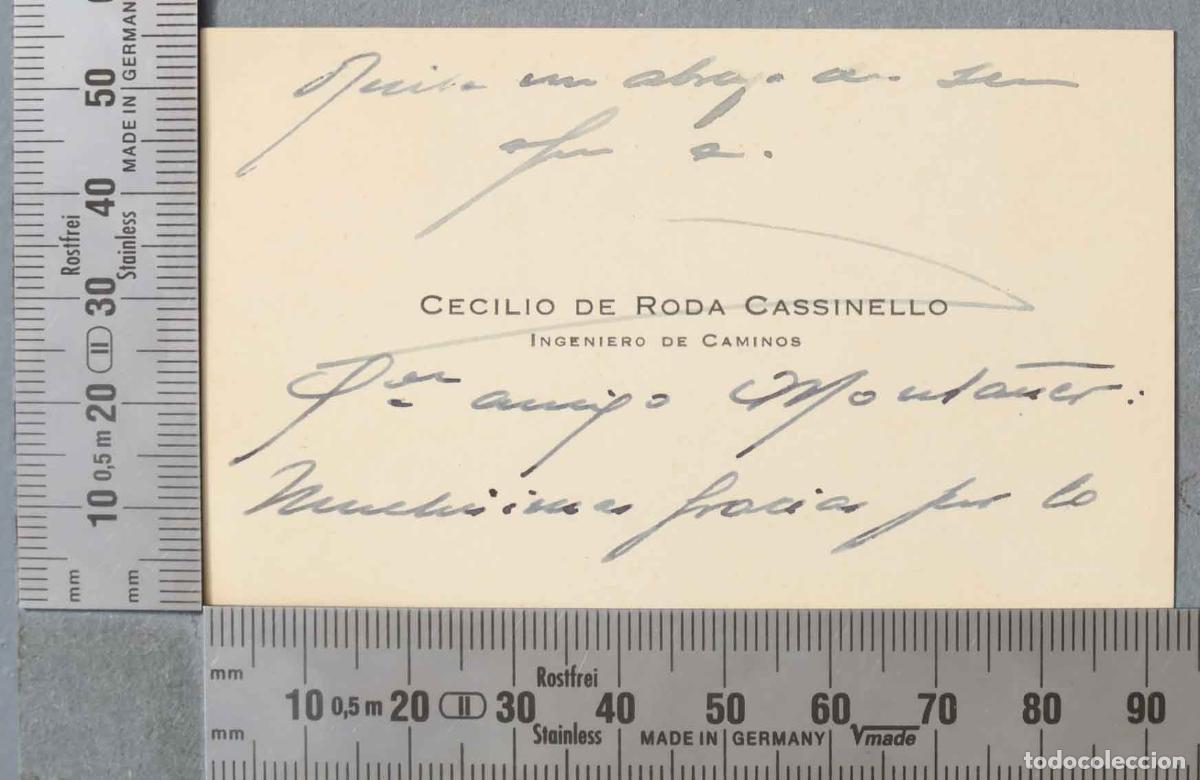 un abrazo de su
CECILIO DE RODA CASSINELLO
INGENIERO DE CAMINOS
amigo Montañer:
Muchisimas gracias por lo
mm
10 0,5 m 20 II 30 40 50
Rostfrei
Stainless
MADE IN GERMANY
mm
mm
Rostfrei
10 0,5 m 20 II 30 40 50 60 70 80 90
mm
Stainless MADE IN GERMANY made
todocoleccion